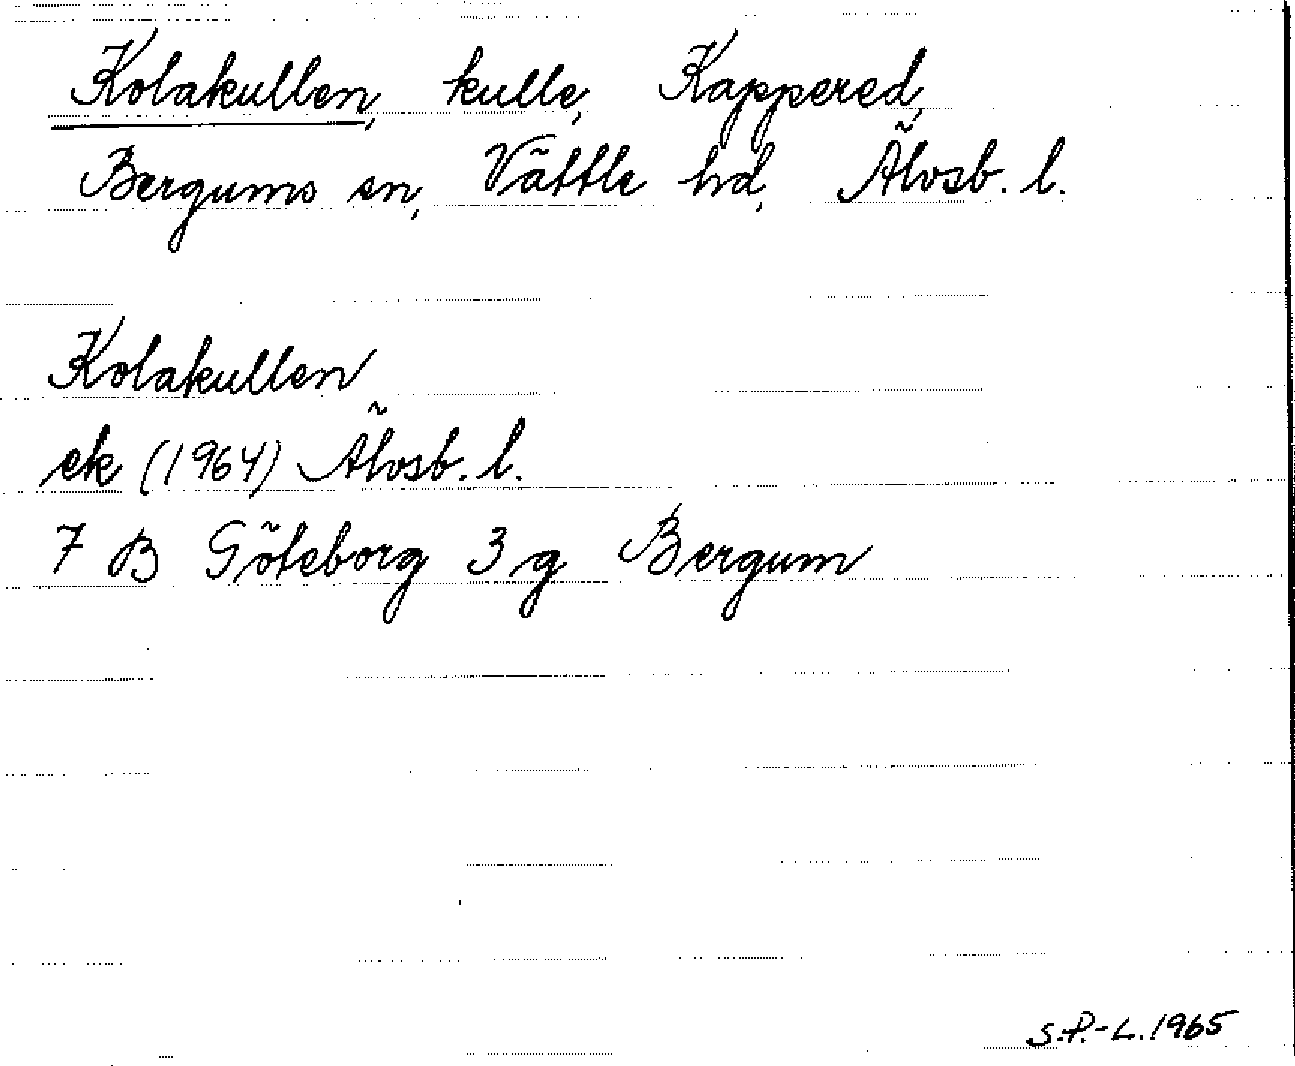 Kolakullen, kulle, Kappered,
Bergums sn, Vättle hd, Älvsb. l.
Kolakullen
ek (1964) Älvsb. l.
7 B Göteborg 3 g Bergum
S.P.-L. 1965